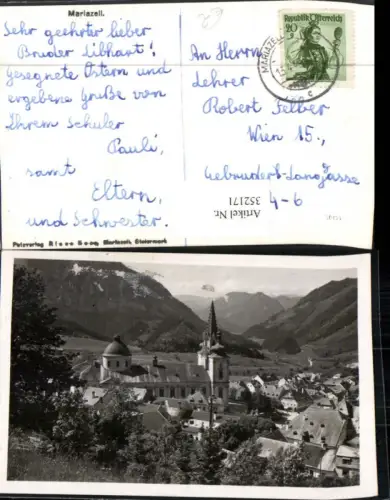 Mariazell.
Sehr geehrter lieber
Bruder Libhart!
Gesegnete Ostern und
ergebene Grüße von
Ihrem Schüler
Pauli,
samt
Eltern,
und Schwester.
Fotoverlag Mariazell, Steiermark
Republik Österreich
20
MARIAZELL
An Herrn
Lehrer
Robert Felber
Wien 15.,
Gebrüder-Langgasse
4-6
Artikel Nr.
352171